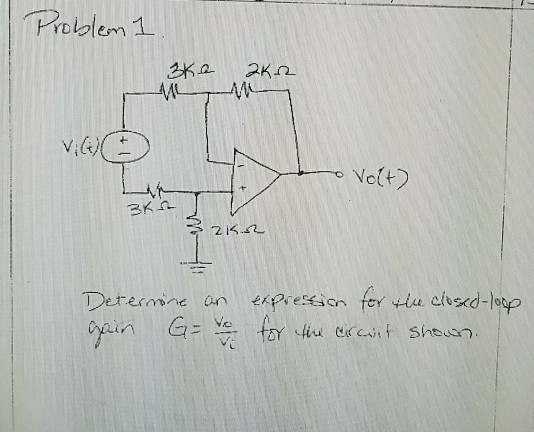 Problem 1.
3KΩ 2KΩ
Vi(t) + -
- Vo(t)
+
3KΩ
2KΩ
Determine an expression for the closed-loop
gain G = Vo/Vi for the circuit shown.